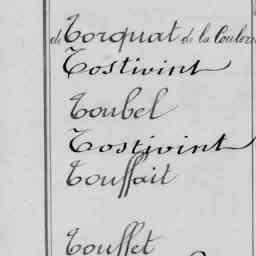 de Torquat de la Coulerie
Tostivint
Toubel
Tostivint
Touffait
Touffet